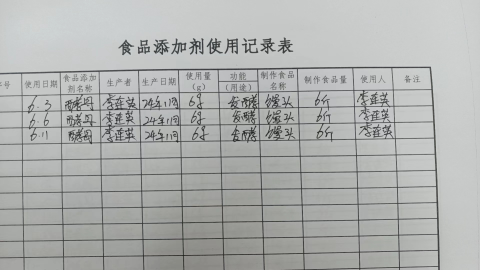 食品添加剂使用记录表
序号 使用日期 食品添加剂名称 生产者 生产日期 使用量(g) 功能(用途) 制作食品名称 制作食品量 使用人 备注
6.3 酵母 李莲英 24年1月 6g 发酵 馒头 6斤 李莲英
6.6 酵母 李莲英 24年1月 6g 发酵 馒头 6斤 李莲英
6.11 酵母 李莲英 24年1月 6g 发酵 馒头 6斤 李莲英